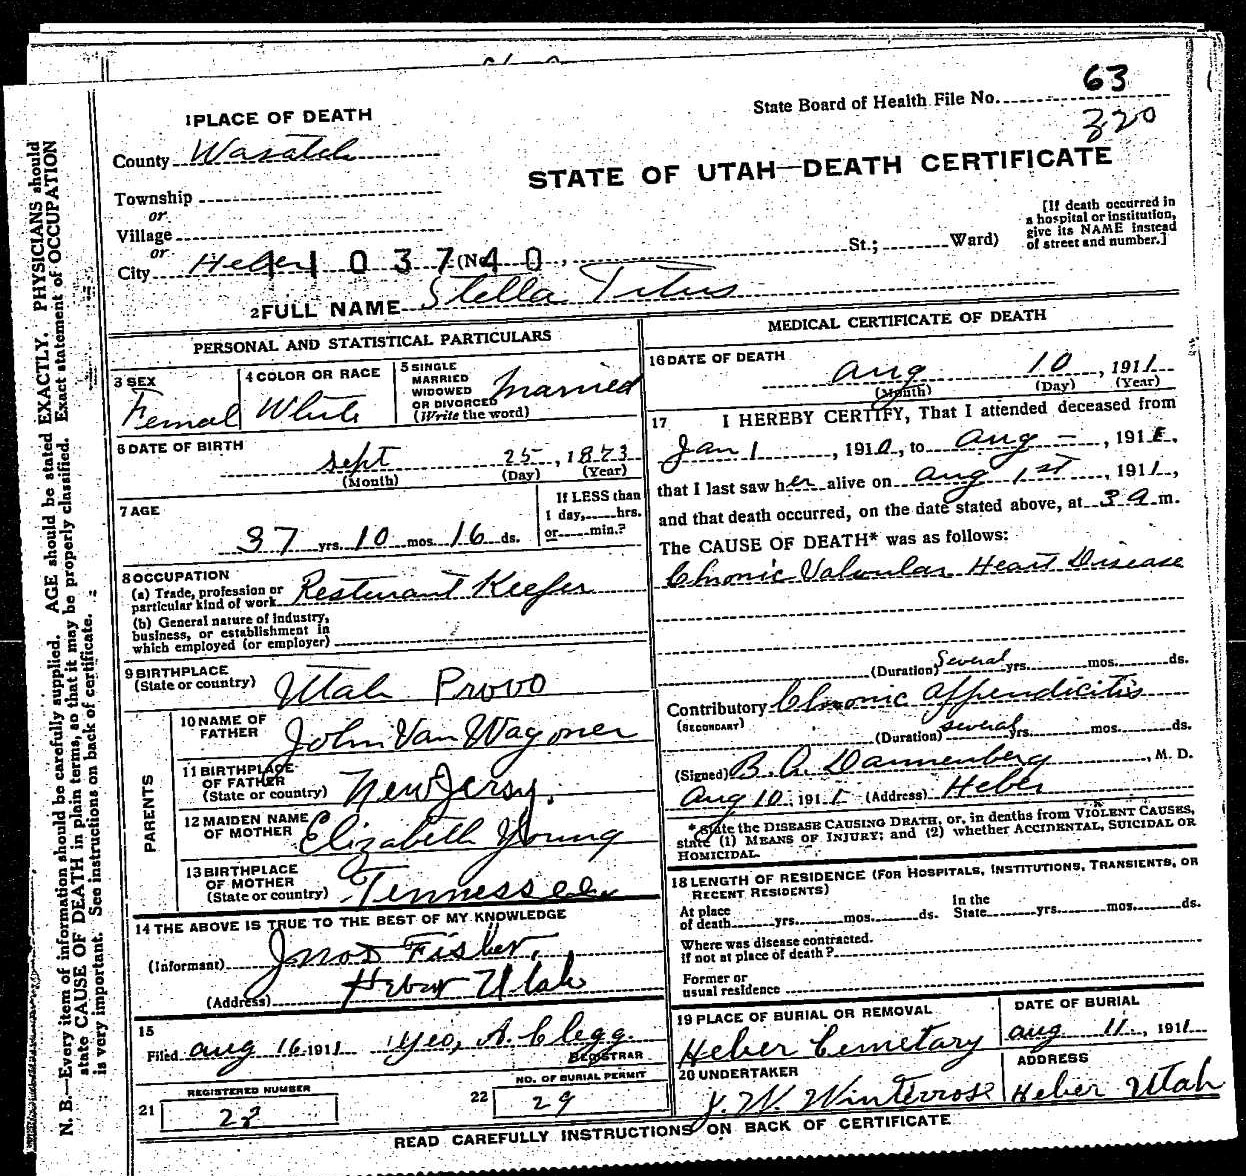 State Board of Health File No. 63
320
1 PLACE OF DEATH
County Wasatch
STATE OF UTAH—DEATH CERTIFICATE
Township
or
Village
or
City Heber (No. , St.; Ward)
1 1 0 3 7 4 0
[If death occurred in
a hospital or institution,
give its NAME instead
of street and number.]
2 FULL NAME Stella Titus
PERSONAL AND STATISTICAL PARTICULARS
3 SEX
Femal
4 COLOR OR RACE
White
5 SINGLE
MARRIED
WIDOWED
OR DIVORCED
(Write the word)
Married
6 DATE OF BIRTH
Sept 25, 1873
(Month) (Day) (Year)
7 AGE
37 yrs. 10 mos. 16 ds.
If LESS than
1 day, hrs.
or min.?
8 OCCUPATION
(a) Trade, profession or
particular kind of work Resturant Keefer
(b) General nature of industry,
business, or establishment in
which employed (or employer)
9 BIRTHPLACE
(State or country) Utah Provo
PARENTS
10 NAME OF
FATHER John Van Wagoner
11 BIRTHPLACE
OF FATHER
(State or country) New Jersy.
12 MAIDEN NAME
OF MOTHER Elizabeth Young
13 BIRTHPLACE
OF MOTHER
(State or country) Tennessee
14 THE ABOVE IS TRUE TO THE BEST OF MY KNOWLEDGE
(Informant) Fisher,
(Address) Heber Utah
15
Filed Aug 16 1911 Geo, A. Clegg.
REGISTRAR
21 REGISTERED NUMBER
22 NO. OF BURIAL PERMIT
29
MEDICAL CERTIFICATE OF DEATH
16 DATE OF DEATH
Aug 10, 1911
(Month) (Day) (Year)
17 I HEREBY CERTIFY, That I attended deceased from
Jan 1, 1910, to Aug —, 191
that I last saw her alive on Aug 1st, 1911,
and that death occurred, on the date stated above, at 3 a m.
The CAUSE OF DEATH* was as follows:
Chronic Valvular Heart Disease
(Duration) Several yrs. mos. ds.
Contributory Chronic appendicitis
(SECONDARY)
(Duration) several yrs. mos. ds.
(Signed) B. A. Dannenberg, M. D.
Aug 10, 1911 (Address) Heber
*State the DISEASE CAUSING DEATH, or, in deaths from VIOLENT CAUSES,
state (1) MEANS OF INJURY; and (2) whether ACCIDENTAL, SUICIDAL OR
HOMICIDAL.
18 LENGTH OF RESIDENCE (FOR HOSPITALS, INSTITUTIONS, TRANSIENTS, OR
RECENT RESIDENTS)
At place
of death yrs. mos. ds.
In the
State yrs. mos. ds.
Where was disease contracted.
if not at place of death?
Former or
usual residence
19 PLACE OF BURIAL OR REMOVAL
Heber Cemetary
DATE OF BURIAL
Aug 11, 1911
20 UNDERTAKER
J. W. Winterrose
ADDRESS
Heber Utah
READ CAREFULLY INSTRUCTIONS ON BACK OF CERTIFICATE
N. B.—Every item of information should be carefully supplied. AGE should be stated EXACTLY. PHYSICIANS should
state CAUSE OF DEATH in plain terms, so that it may be properly classified. Exact statement of OCCUPATION
is very important. See instructions on back of certificate.